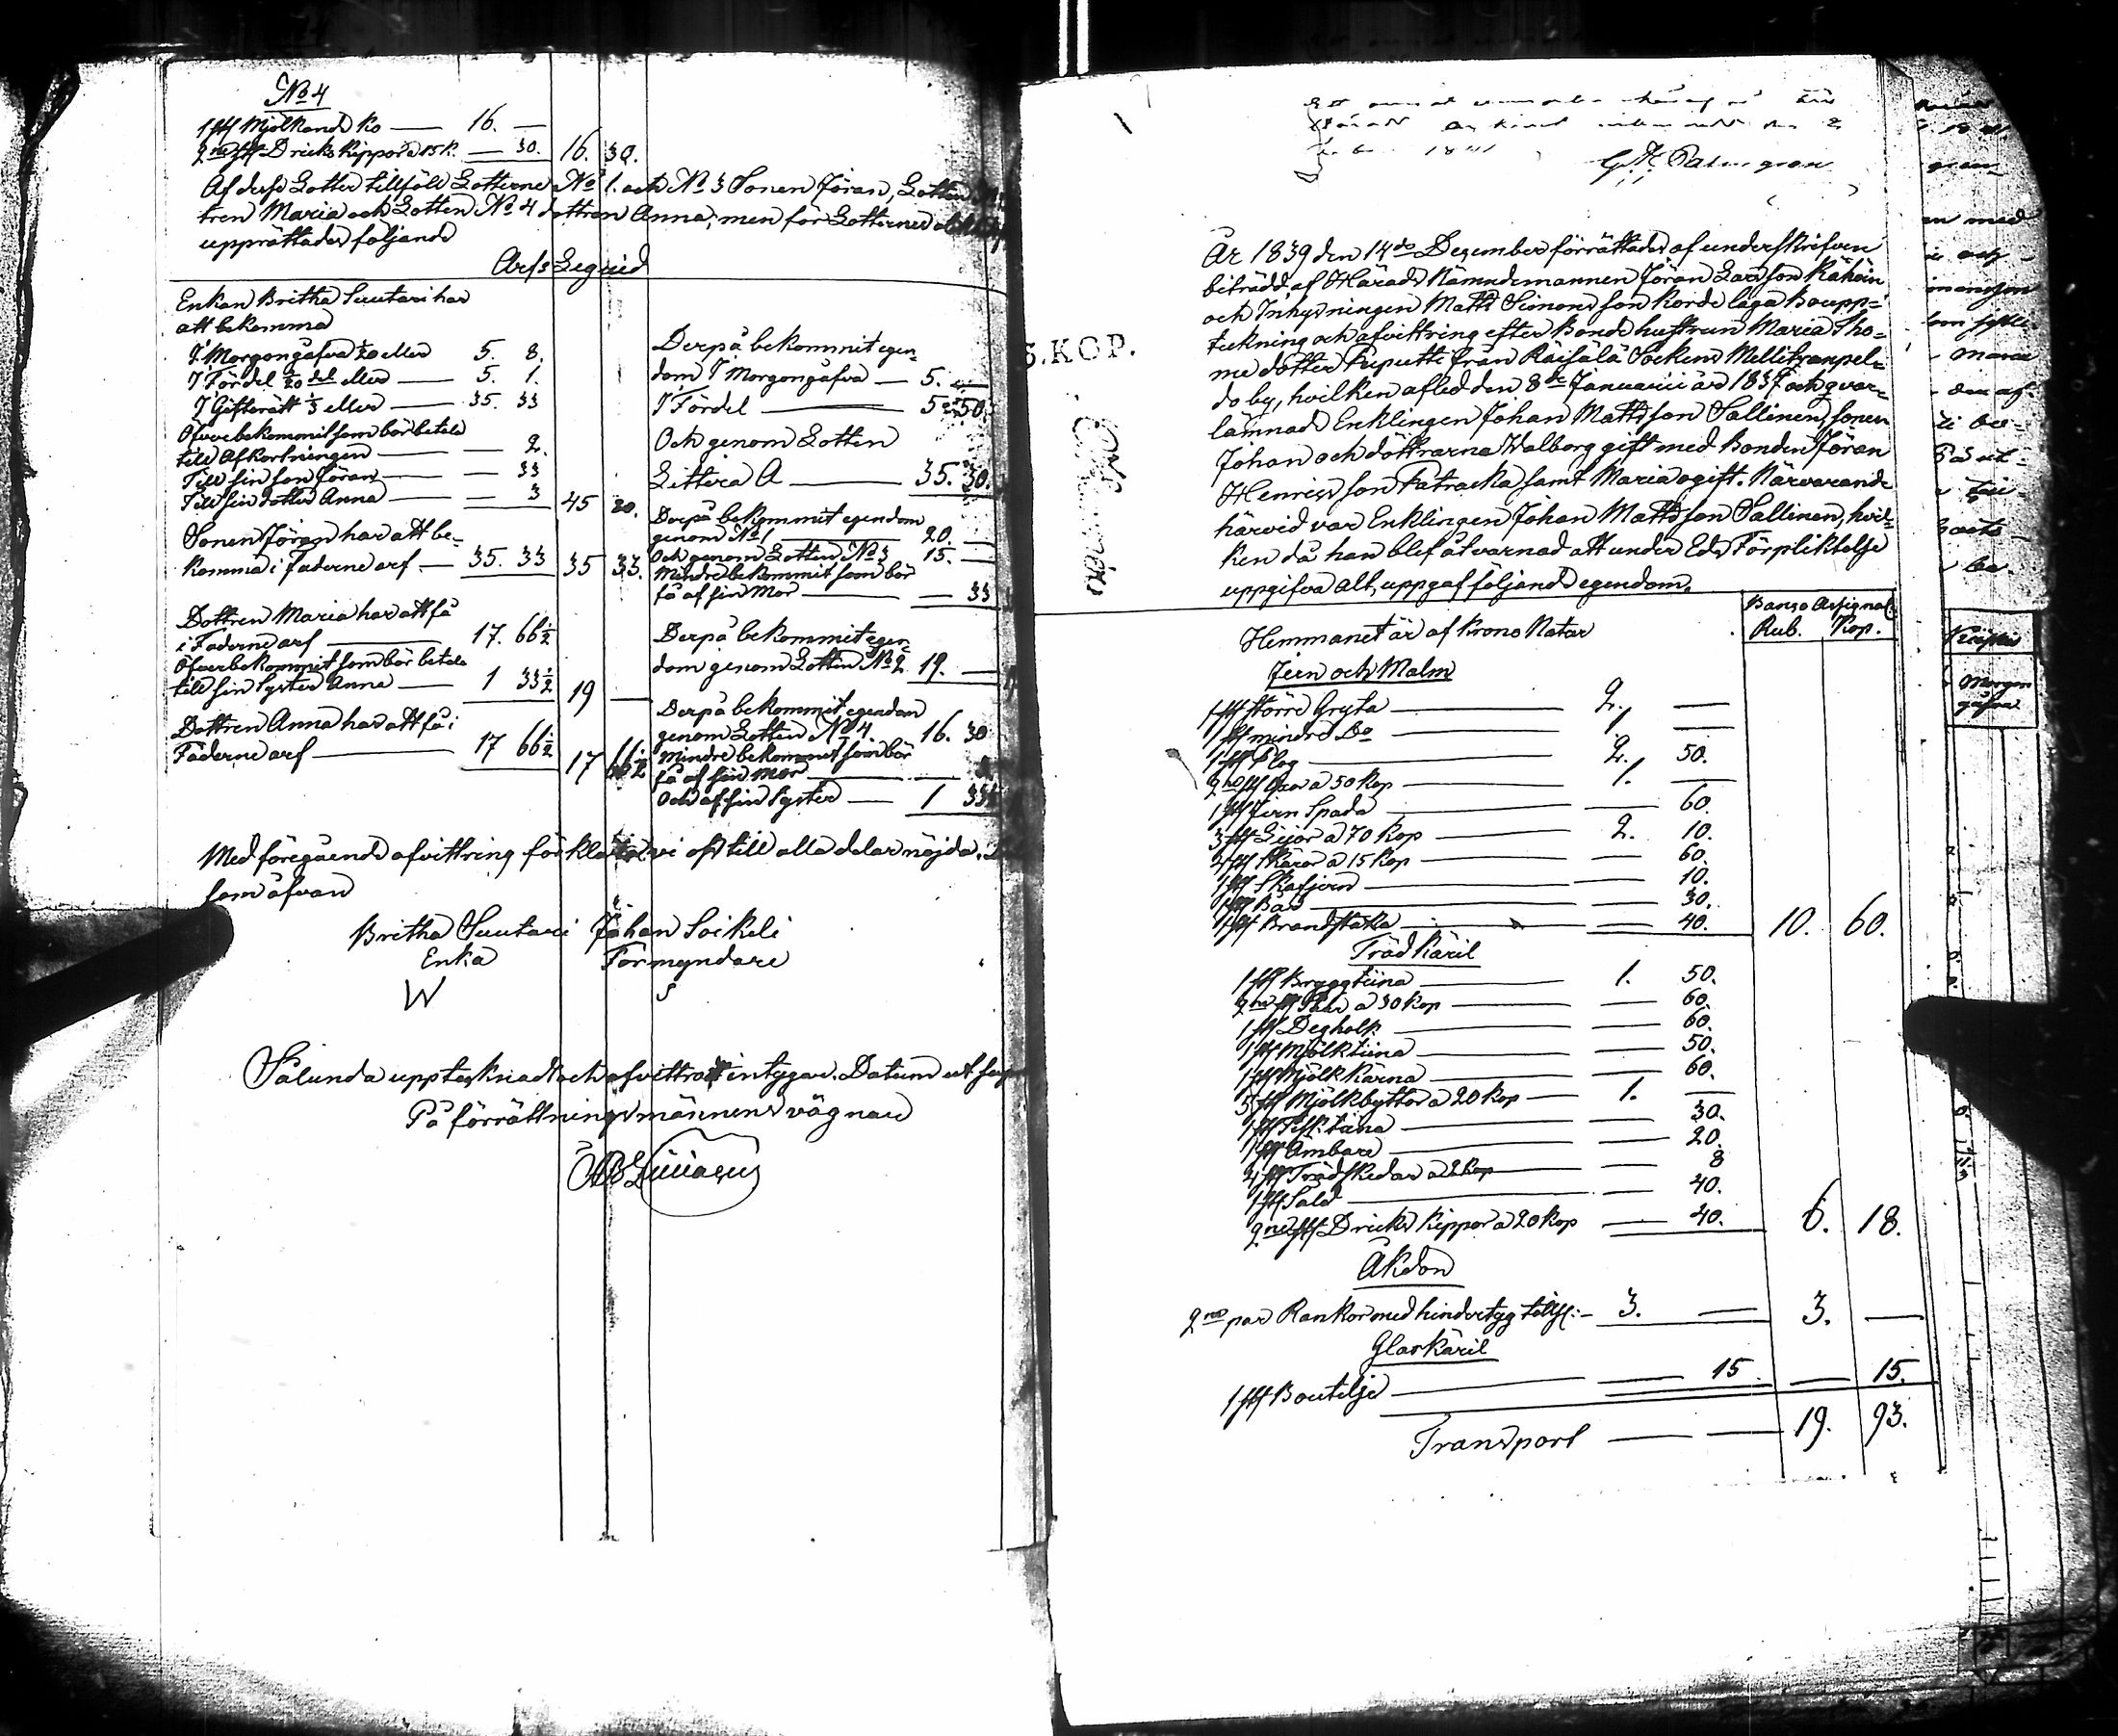 No 4
1 st Mjölkande ko — 16. —
2ne st Dricks Kippor a 15 k. — 30. 16. 30.
Af dess Lotter tillföll Lotterne No 1. och No 3 Sonen Jöran, Lotten
tren Maria och Lotten No 4 dottren Anna; men för Lotternes
upprättades följande
Arfs Legvid
Enkan Britha Suutari har
att bekomma
I Morgongåfva 1/20 eller 5. 8.
I Fördel 1/20 del eller — 5. 1.
I Gifterätt 1/3 eller — 35. 33
Öfverbekommit som bör betala
till Afkortningen — — 2.
Till sin son Jöran — — 33
Till sin dotter Anna — — 3 45 80.
Sonen Jöran har att be-
komma i Faderne arf — 35. 33 35 33.
Dottren Maria har att få
i Faderne arf — 17. 66 1/2
Öfverbekommit som bör betala
till sin Syster Anna — 1 33 1/2 19 —
Dottren Anna har att få i
Faderne arf — 17 66 1/2 17 66 1/2
Derpå bekommit egen-
dom I Morgongåfva — 5. —
I Fördel — 5 50.
Och genom Lotten
Littera A — 35. 30.
Derpå bekommit egendom
genom No 1 — 20. —
Och genom Lotten No 3 15. —
Mindre bekommit som bör
få af sin Mor — — 33
Derpå bekommit egen-
dom genom Lotten No 2 19. —
Derpå bekommit egendom
genom Lotten No 4. 16. 30
Mindre bekommit som bör
få af sin Mor —
Och af sin Syster — 1 33
Med föregående afvittring förklara vi oss till alla delar nöjda.
som åfvan
Britha Suutari Johan Soikeli
Enka Förmyndare
W S
Sålunda upptecknadt och afvittrat intygar. Datum ut
På förrättningsmännens vägnar
1841
G. Palmgren
5.KOP.
År 1839 den 14de Dezember förrättades af underskrifven
biträdd af Härads Nämndemannen Jöran Larsson Rähöin
och Inhysningen Matts Simonsson Korde laga Boupp-
teckning och afvittring efter Bonde hustrun Maria Tho-
me dotter Puputti från Räisälä Sockens Mellitzanpel-
do by, hvilken afled den 8de Januarii år 1837 och qvar-
lämnade Enklingen Johan Mattsson Sallinen, sonen
Johan och döttrarna Walborg gift med Bonden Jöran
Henrics son Patracka samt Maria ogift. Närvarande
härvid var Enklingen Johan Mattsson Sallinen, hvil-
ken då han blef åtvarnad att under Eds Förpliktelse
uppgifva alt, uppgaf följande egendom.
Banco Assignat:
Rub. Kop.
Hemmanet är af Krono Natur
Jern och Malm
1 st större Gryta — 2. —
1 st mindre Do — 1. —
1 st Plog — 2. 50.
2ne st Yxor a 50 kop — 1. —
1 st Jern Spada — — 60.
3 st Liejor a 70 kop — 2. 10.
4 st Skäror a 15 kop — — 60.
1 st Skafjern — — 10.
1 st — — 30.
1 st Brandstaka — — 40. 10. 60.
Träd Käril
1 st Bryggtiina — 1. 50.
2ne st Såar a 30 kop — — 60.
1 st Degholk — — 60.
1 st Mjölktiina — — 50.
1 st Mjölk Kärna — — 60.
5 st Mjölkbyttor a 20 kop — 1. —
1 st Fisk tiina — — 30.
1 st Ämbare — — 20.
4 st Trädskedar a 2 kop — — 8
1 st Såld — — 40.
2ne st Dricks Kippor a 20 kop — 40. 6. 18.
Åkdon
2ne par Rankor med hindertyg tills: — 3. — 3. —
Glas Käril
1 st Boutelje — — 15 — 15.
Transport — — 19. 93.